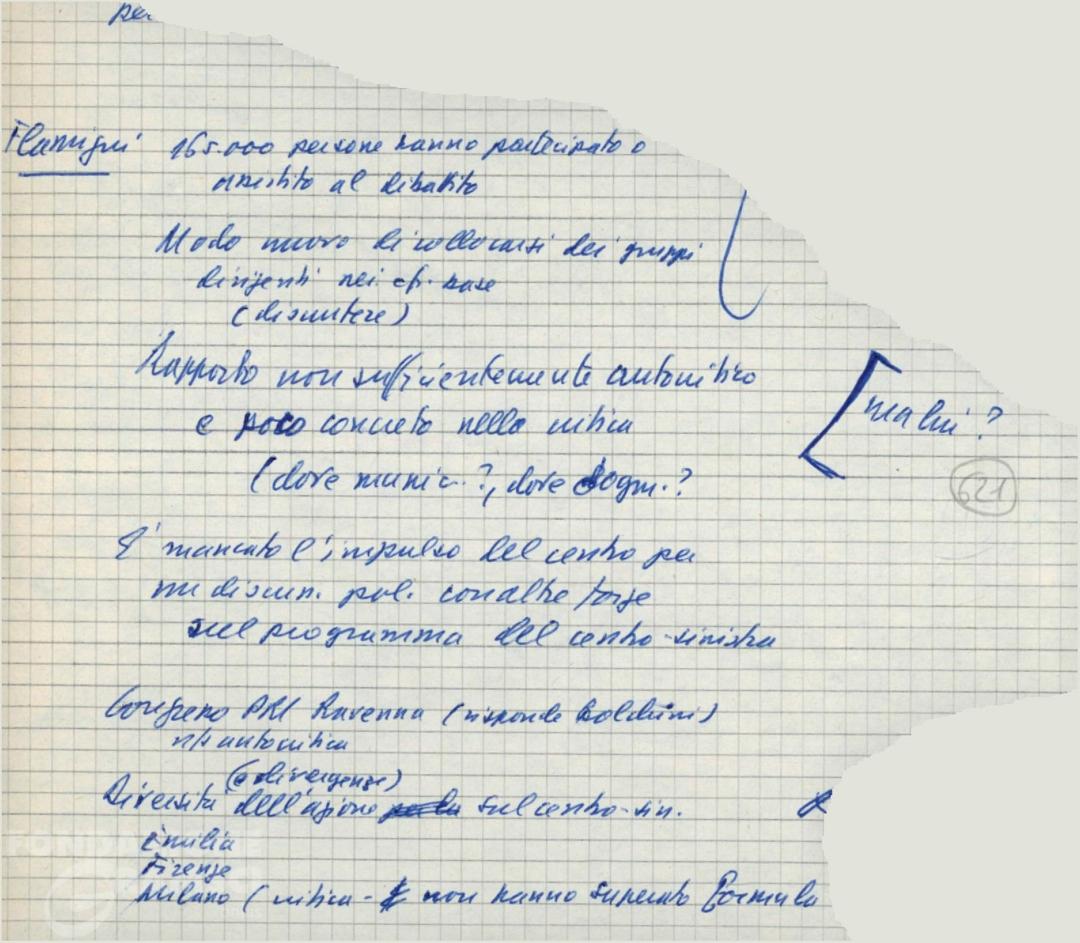 per
Flamigni 165.000 persone hanno partecipato o
assistito al dibattito
Modo nuovo di collocarsi dei gruppi
dirigenti nei cfr. base
(discutere)
Rapporto non sufficientemente autocritico
e poco concreto nella critica
ma lui?
(dove manic.?, dove dogm.?
621
E' mancato l'impulso del centro per
una discuss. pol. con altre forze
sul programma del centro-sinistra
Congresso PRI Ravenna (risponde Boldrini)
n/s autocritica
(e divergenze)
Diversità dell'azione sul centro-sin.
Emilia
Firenze
Milano (critica - non hanno superato formula